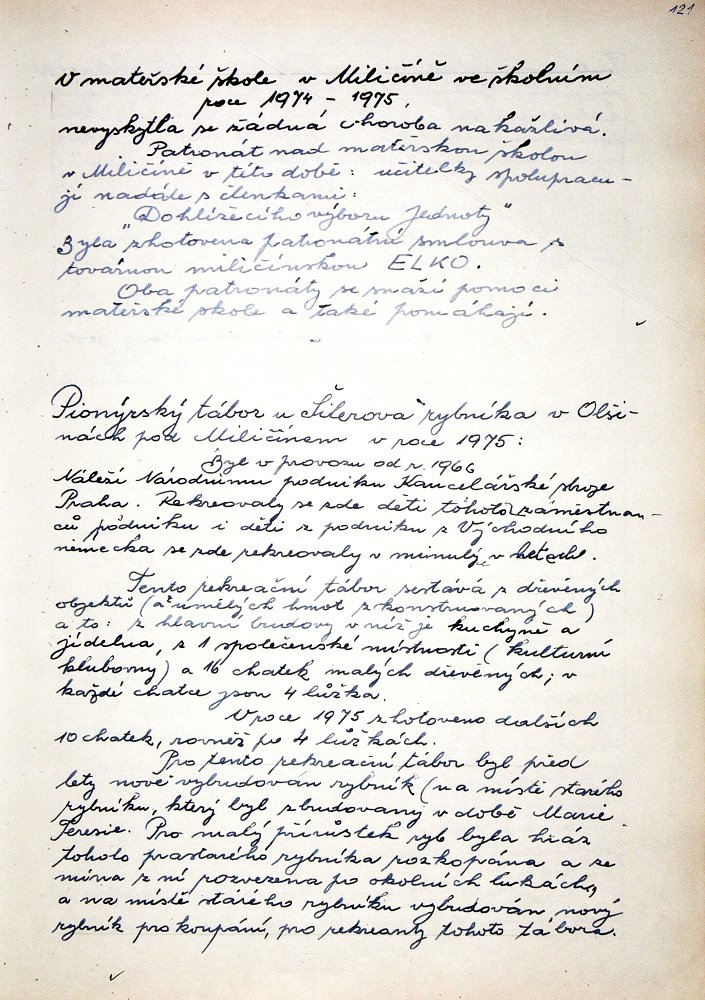 121
V mateřské škole v Miličíně ve školním
roce 1974 - 1975,
nevyskytla se žádná choroba nakažlivá.
Patronát nad mateřskou školou
v Miličíně v této době: učitelky spolupracu-
jí nadále s členkami:
"Dohlížecího výboru Jednoty"
Byla zhotovena patronátní smlouva s
továrnou miličínskou ELKO.
Oba patronáty se snaží pomoci
mateřské škole a také pomáhají.
Pionýrský tábor u "Šilerova" rybníka v Olši-
nách pod Miličínem v roce 1975:
Byl v provozu od r. 1966
Náleží Národnímu podniku Kancelářské stroje
Praha. Rekreovaly se zde děti tohoto zaměstnan-
ců podniku i děti z podniku z Východního
německa se zde rekreovaly v minulých letech.
Tento rekreační tábor sestává z dřevěných
objektů (a umělých hmot zkonstruovaných)
a to: z hlavní budovy v níž je kuchyně a
jídelna, z 1 společenské místnosti (kulturní
klubovny) a 16 chatek malých dřevěných; v
každé chatce jsou 4 lůžka.
V roce 1975 zhotoveno dalších
10 chatek, rovněž po 4 lůžkách.
Pro tento rekreační tábor byl před
lety nově vybudován rybník (na místě starého
rybníku, který byl zbudovaný v době Marie
Teresie. Pro malý přírůstek ryb byla hráz
tohoto prastarého rybníka rozkopána a ze
mina z ní rozvezena po okolních lukách,
a na místě starého rybníku vybudován nový
rybník pro koupání, pro rekreanty tohoto tábora.